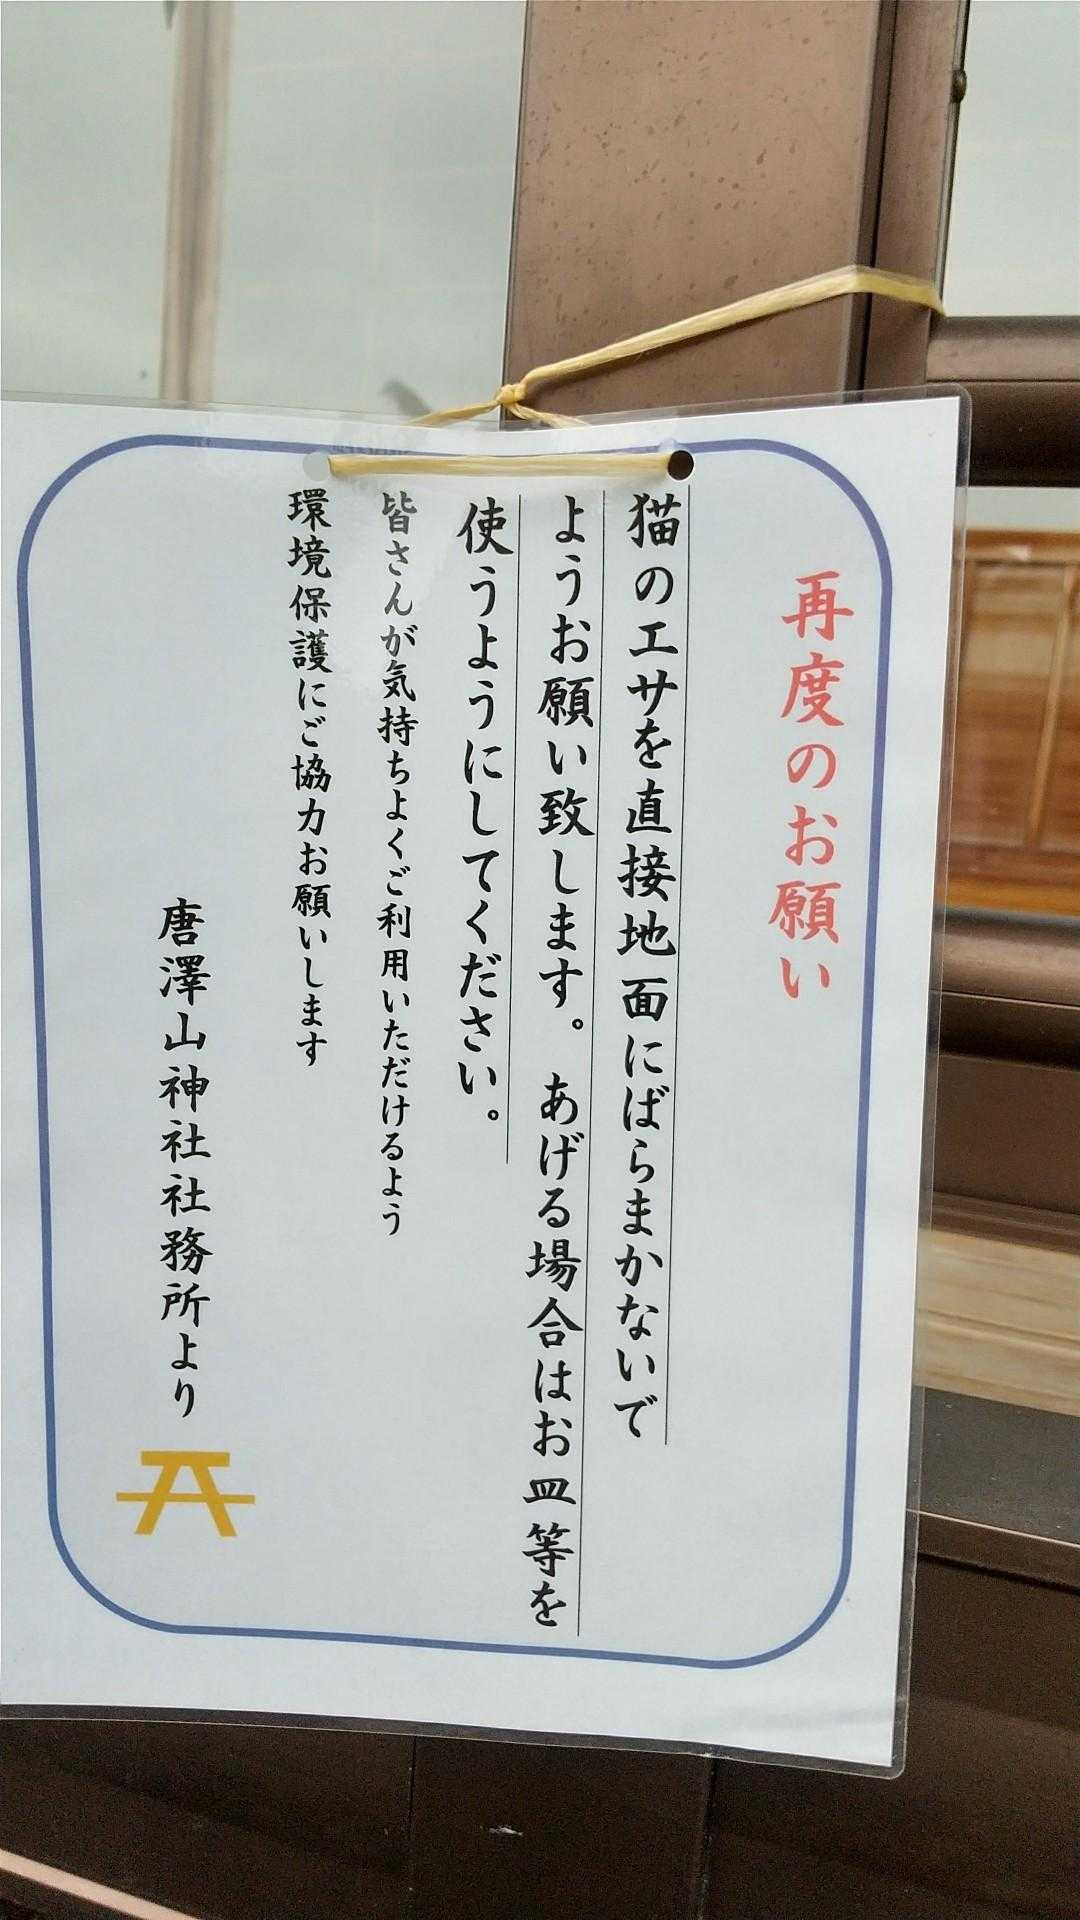 再度のお願い
猫のエサを直接地面にばらまかないで
ようお願い致します。あげる場合はお皿等を
使うようにしてください。
皆さんが気持ちよくご利用いただけるよう
環境保護にご協力お願いします
唐澤山神社社務所より